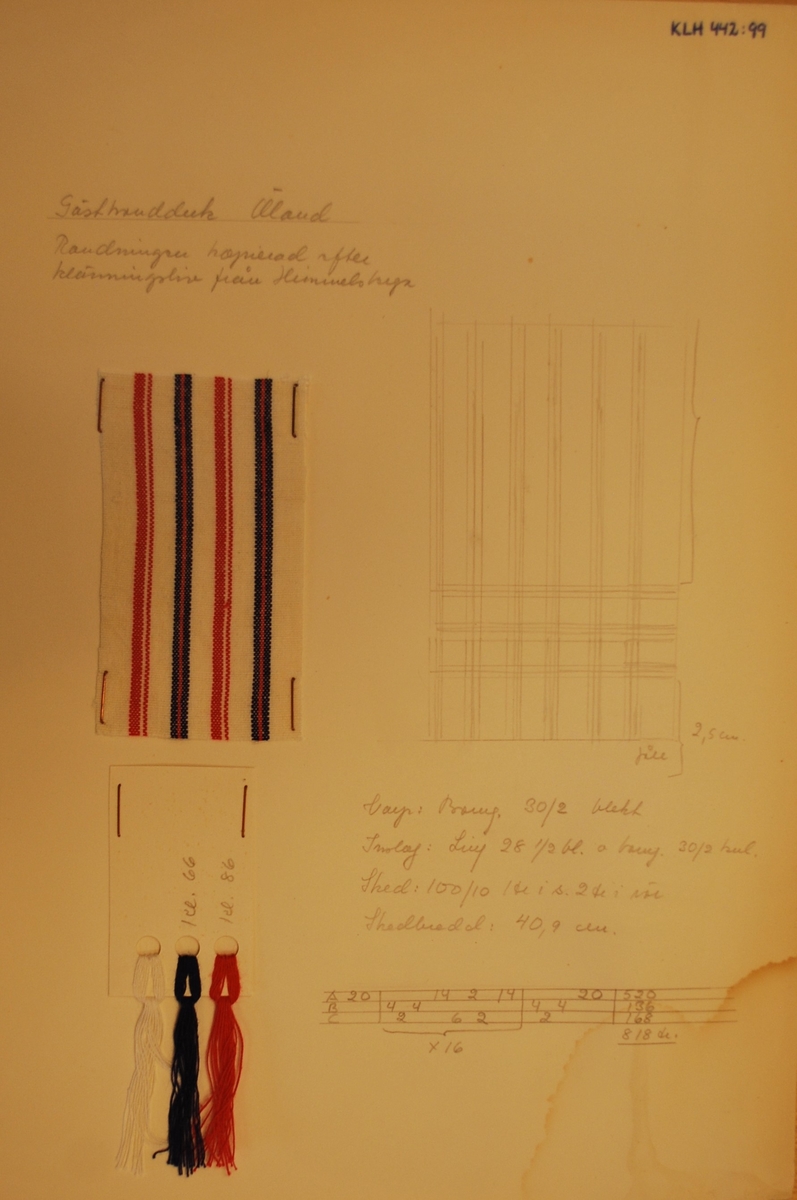 KLH 442:99
Gästhandduk Öland
Randningen kopierad efter
klänningsliv från Himmelsberga
2,5 cm.
fåll
Varp: Bomg. 30/2 blekt
Inslag: Ling 28 1/2 bl. o bomg. 30/2 kul.
Sked: 100/10 1 tr i s. 2 tr i rör
Skedbredd: 40,9 cm.
kl. 66
kl. 86
A 20 14 2 14 20 520
B 4 4 4 4 136
C 2 6 2 2 168
818 tr.
x 16